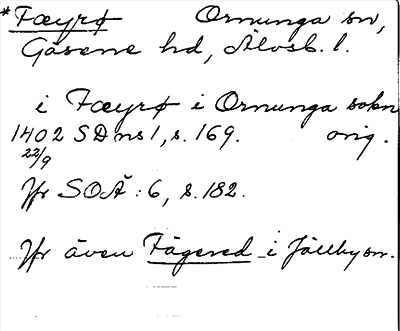 *Fæyrø Ornunga sn,
Gäsene hd, Älvsb. l.
i Fæyrø i Ornunga sokn
1402 SDns 1, s. 169. orig.
22/9
Jfr SOÄ : 6, s. 182.
Jfr även Fägered i Jällby sn.